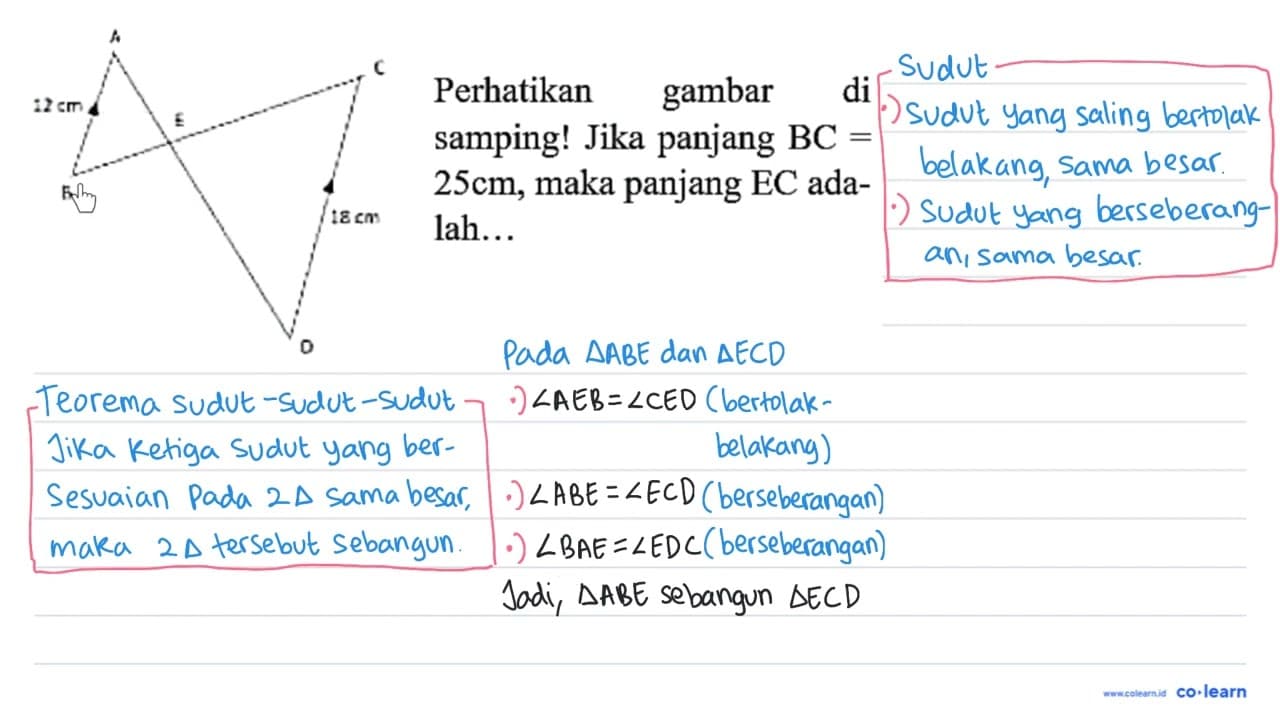 A
C
12 cm
E
18 cm
D
Perhatikan gambar di
samping! Jika panjang BC =
25cm, maka panjang EC ada-
lah...
Sudut
•) Sudut yang saling bertolak
belakang, sama besar.
•) Sudut yang berseberang-
an, sama besar.
Teorema sudut-sudut-sudut
Jika ketiga sudut yang ber-
sesuaian pada 2Δ sama besar,
maka 2Δ tersebut sebangun.
Pada ΔABE dan ΔECD
•) ∠AEB = ∠CED (bertolak-
belakang)
•) ∠ABE = ∠ECD (berseberangan)
•) ∠BAE = ∠EDC (berseberangan)
Jadi, ΔABE sebangun ΔECD
www.colearn.id co•learn